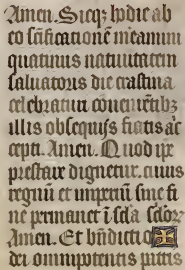 Amen. Sicqꝫ hodie ab
eo sc̄ificationē meamini
quatinus natiuitatem
saluatoris die crastina
celebraturi cōueniētibꝫ
illis obsequijs fiatis ac
cepti. Amen. Quod ip̄e
prestare dignetur. cuius
regnū et imperiū sine fi
ne permanet ī sc̄la sc̄lor
Amen. Et bn̄dictio
dei omnipotentis patris